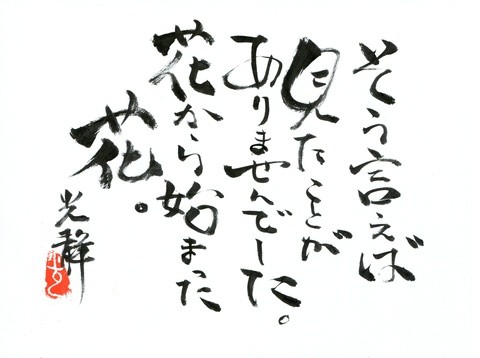 そう言えば
見たことが
ありませんでした。
花から始まった
花。
光祥